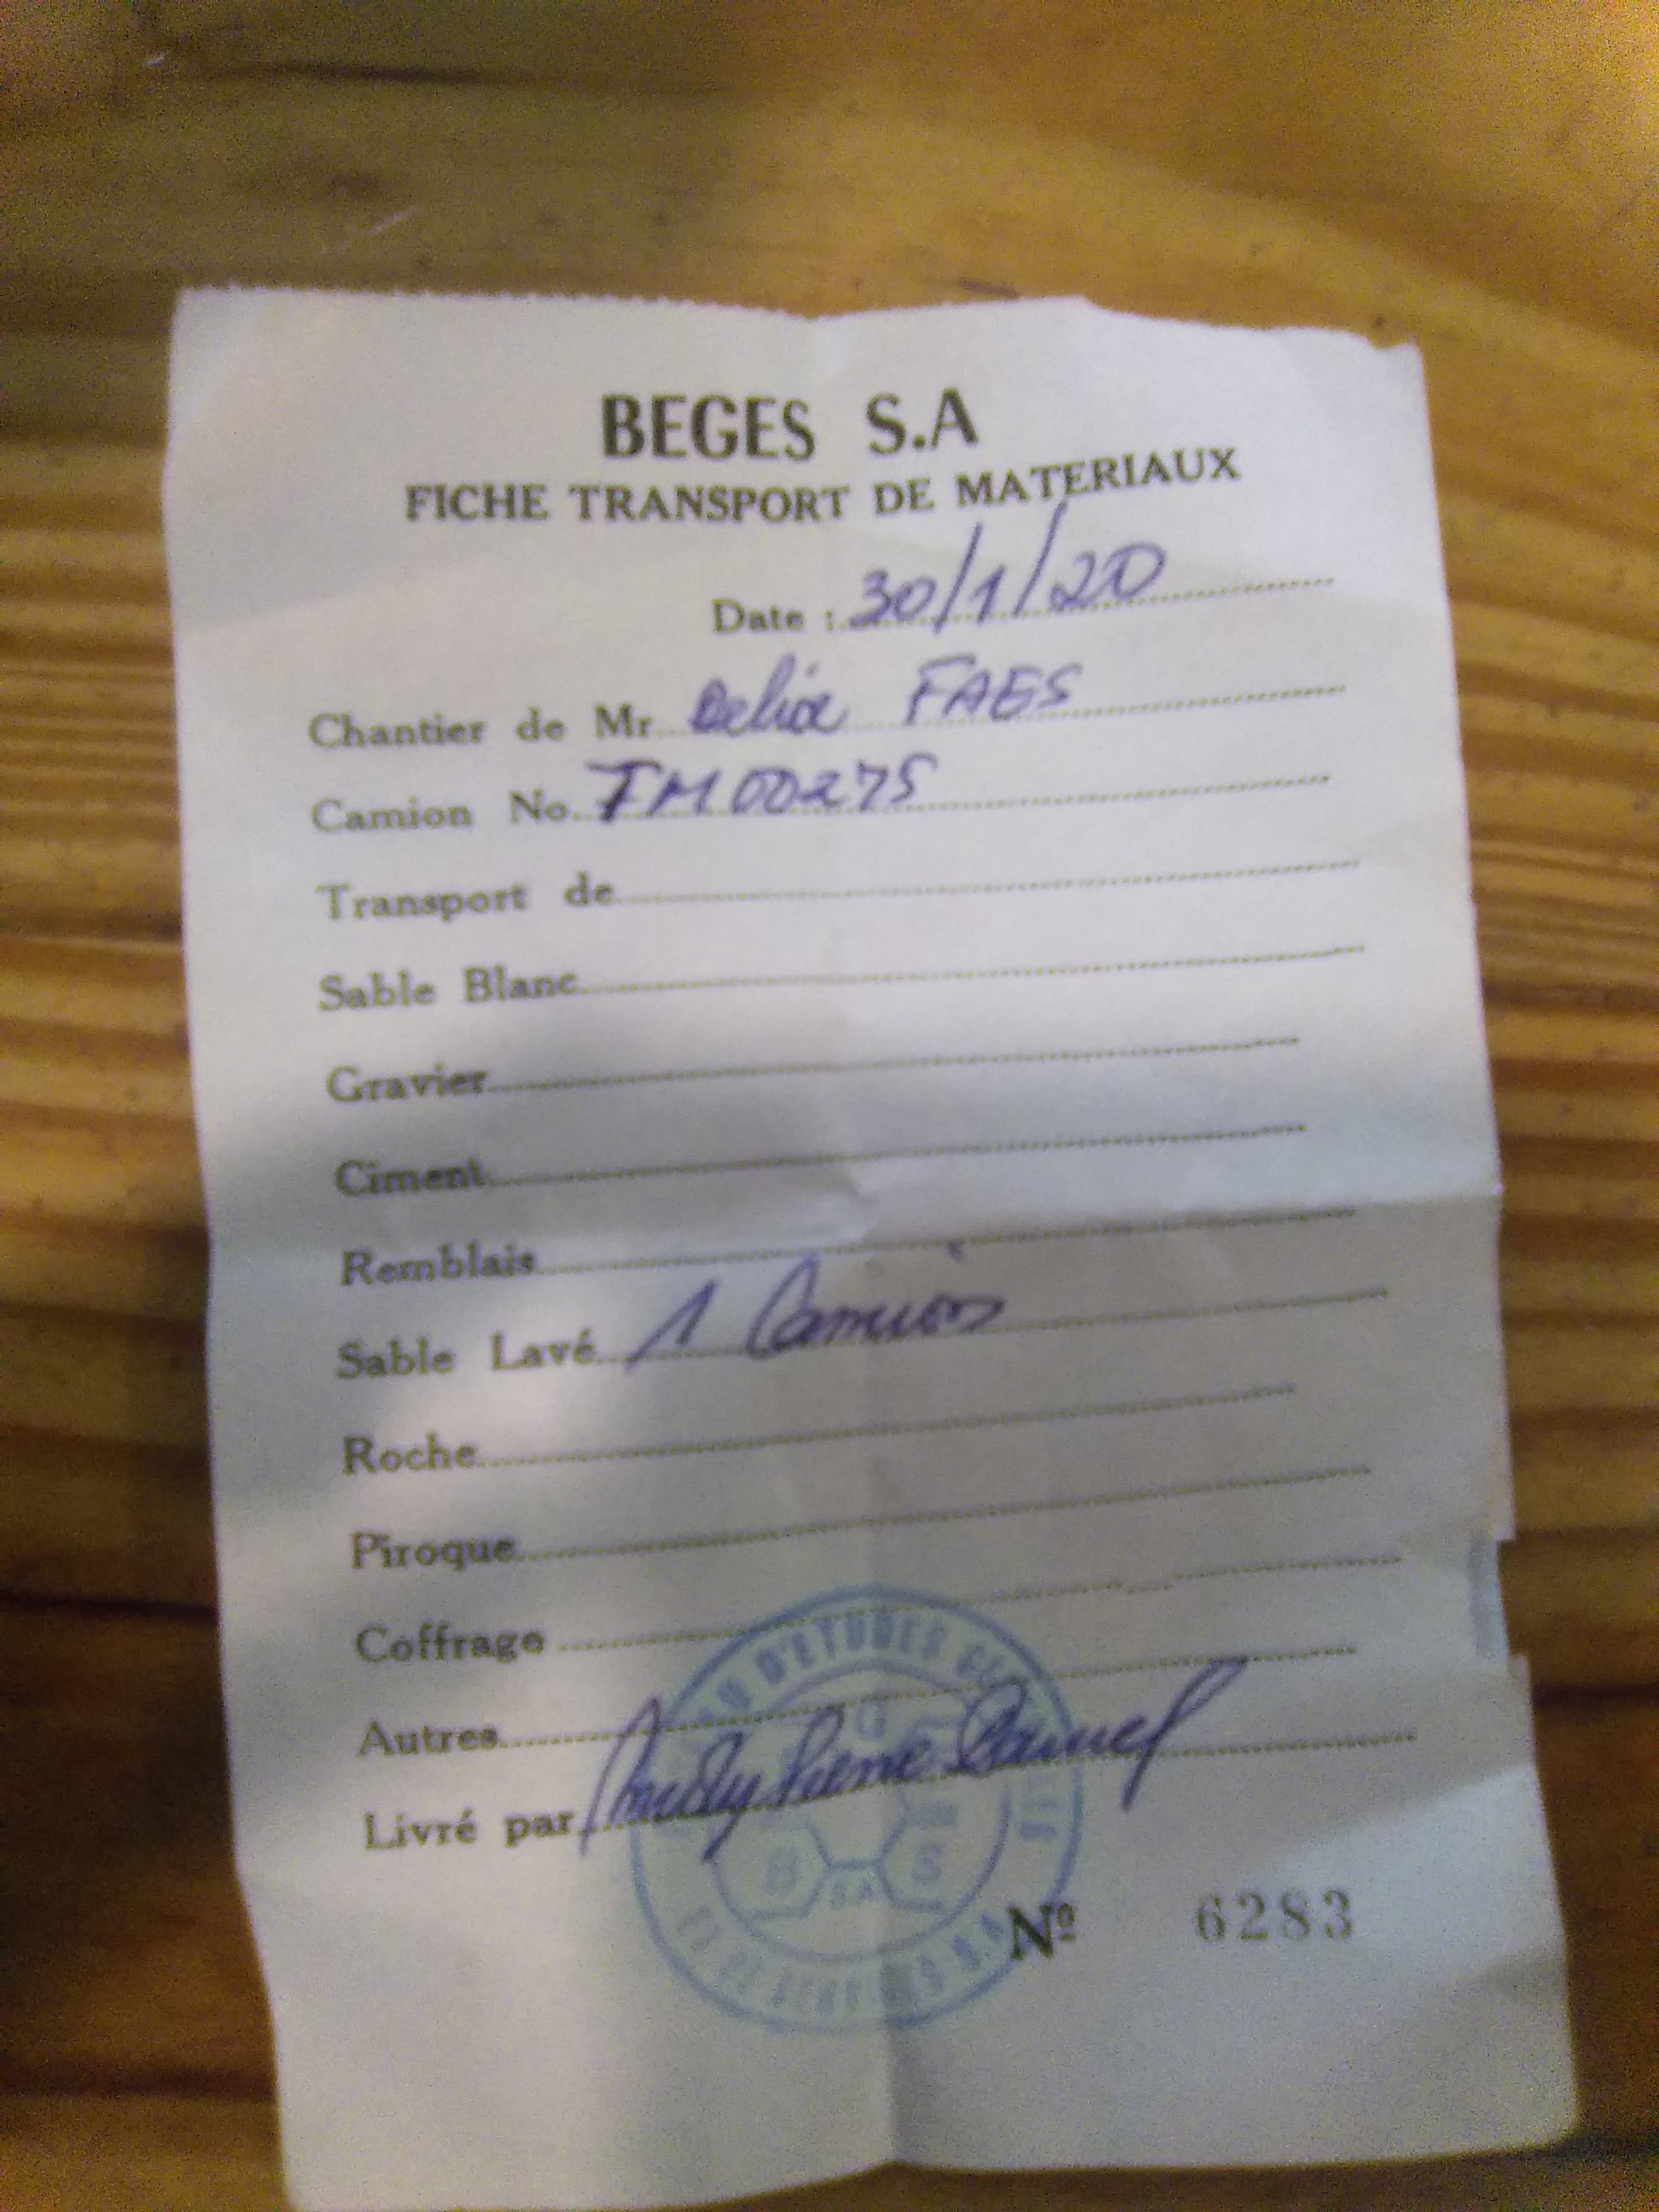 BEGES S.A
FICHE TRANSPORT DE MATERIAUX
Date : 30/1/20
Chantier de Mr FAES
Camion No. TM00275
Transport de
Sable Blanc
Gravier
Ciment
Remblais
Sable Lavé 1 Camion
Roche
Piroque
Coffrage
Autres
Livré par Pierre
D'ETUDES
G
B S.A S
S.A
Nº 6283